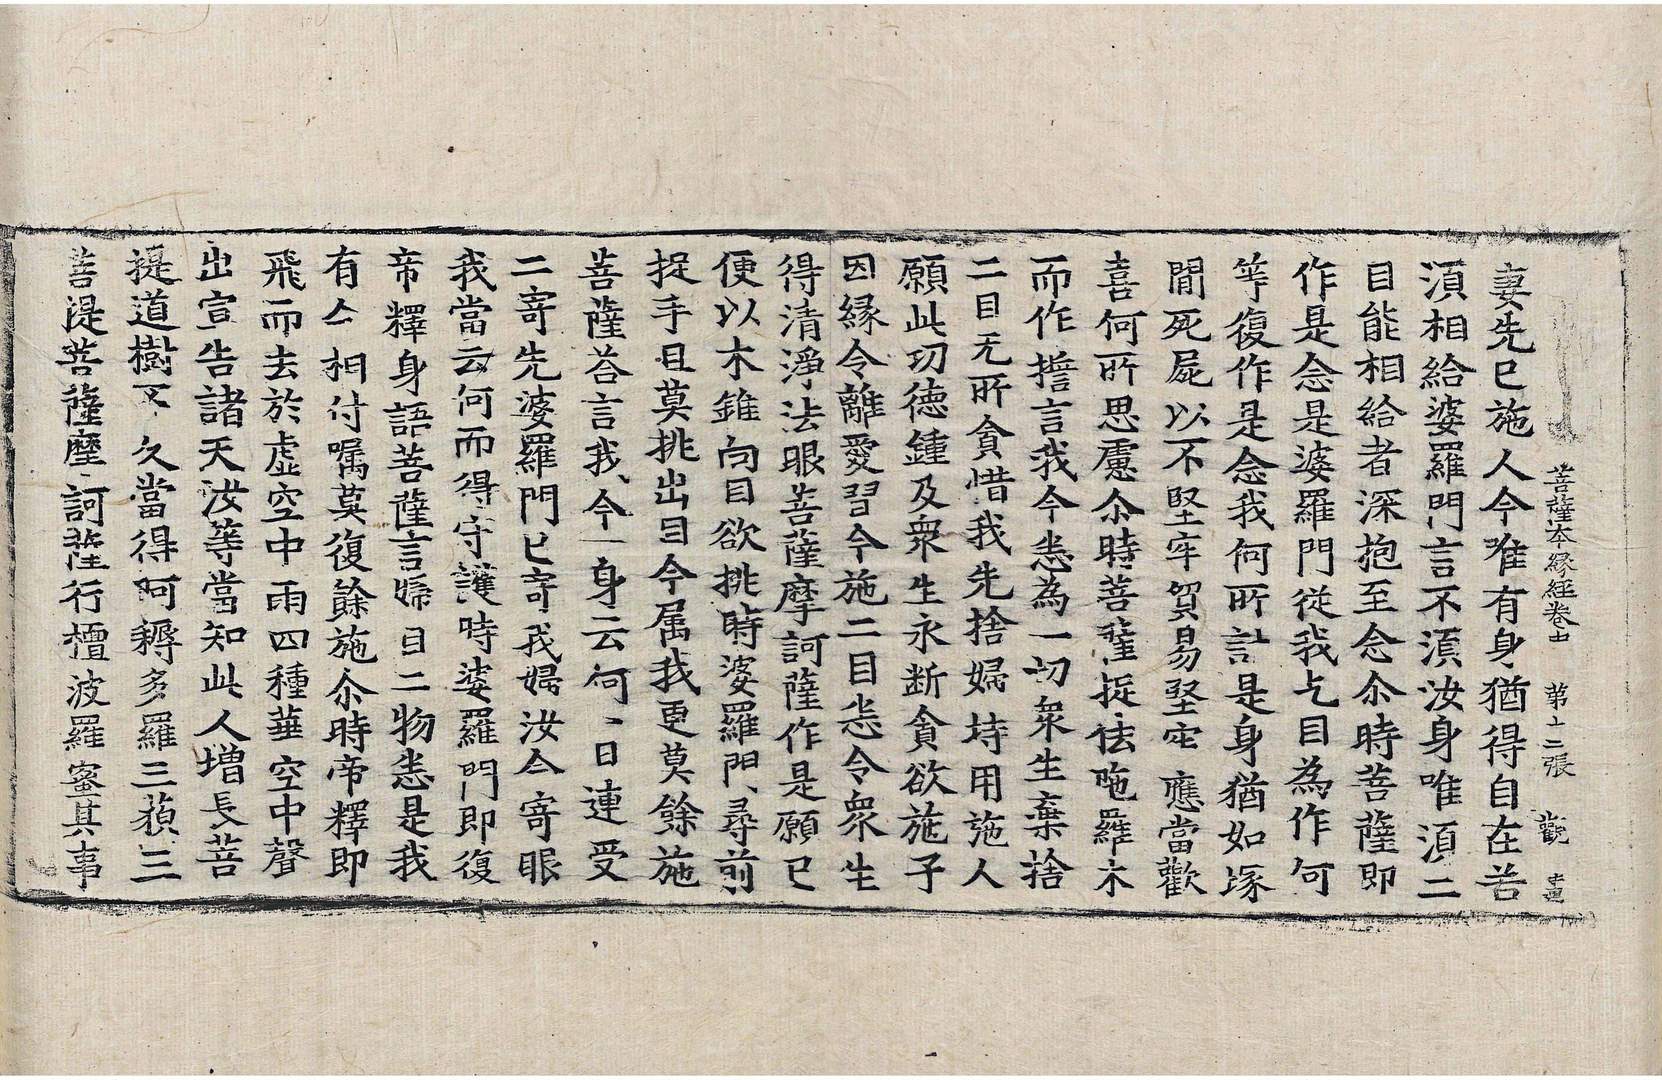 菩薩本緣經卷上　第十二張　觀
妻先已施人今唯有身猶得自在若
湏相給婆羅門言不湏汝身唯湏二
目能相給者深抱至念尒時菩薩即
作是念是婆羅門從我乞目為作何
等復作是念我何所計是身猶如塚
間死屍以不堅牢貿易堅牢應當歡
喜何所思慮尒時菩薩捉佉陁羅木
而作擔言我今悉為一切衆生棄捨
二目无所貪惜我先捨婦持用施人
願此功德鍾及衆生永断貪欲施子
因緣令離愛習今施二目悉令衆生
得清淨法眼菩薩摩訶薩作是願已
便以木錐向目欲挑時婆羅門尋前
捉手且莫挑出目今属我更莫餘施
菩薩荅言我今一身云何一日連受
二寄先婆羅門已寄我婦汝今寄眼
我當云何而得守護時婆羅門即復
帝釋身語菩薩言婦目二物悉是我
有今相付囑莫復餘施尒時帝釋即
飛而去於虛空中雨四種華空中聲
出宣告諸天汝等當知此人增長菩
提道樹不久當得阿耨多羅三藐三
菩提菩薩摩訶薩行檀波羅蜜其事